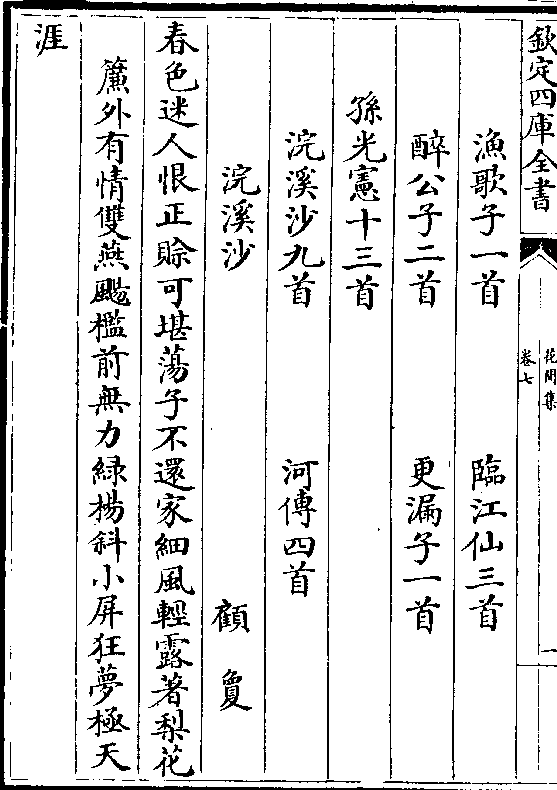 欽定四庫全書
花間集
卷七
一
漁歌子一首　臨江仙三首
醉公子二首　更漏子一首
孫光憲十三首
浣溪沙九首　河傳四首
浣溪沙　顧敻
春色迷人恨正賒可堪蕩子不還家細風輕露著梨花
簾外有情雙燕颺檻前無力綠楊斜小屏狂夢極天
涯